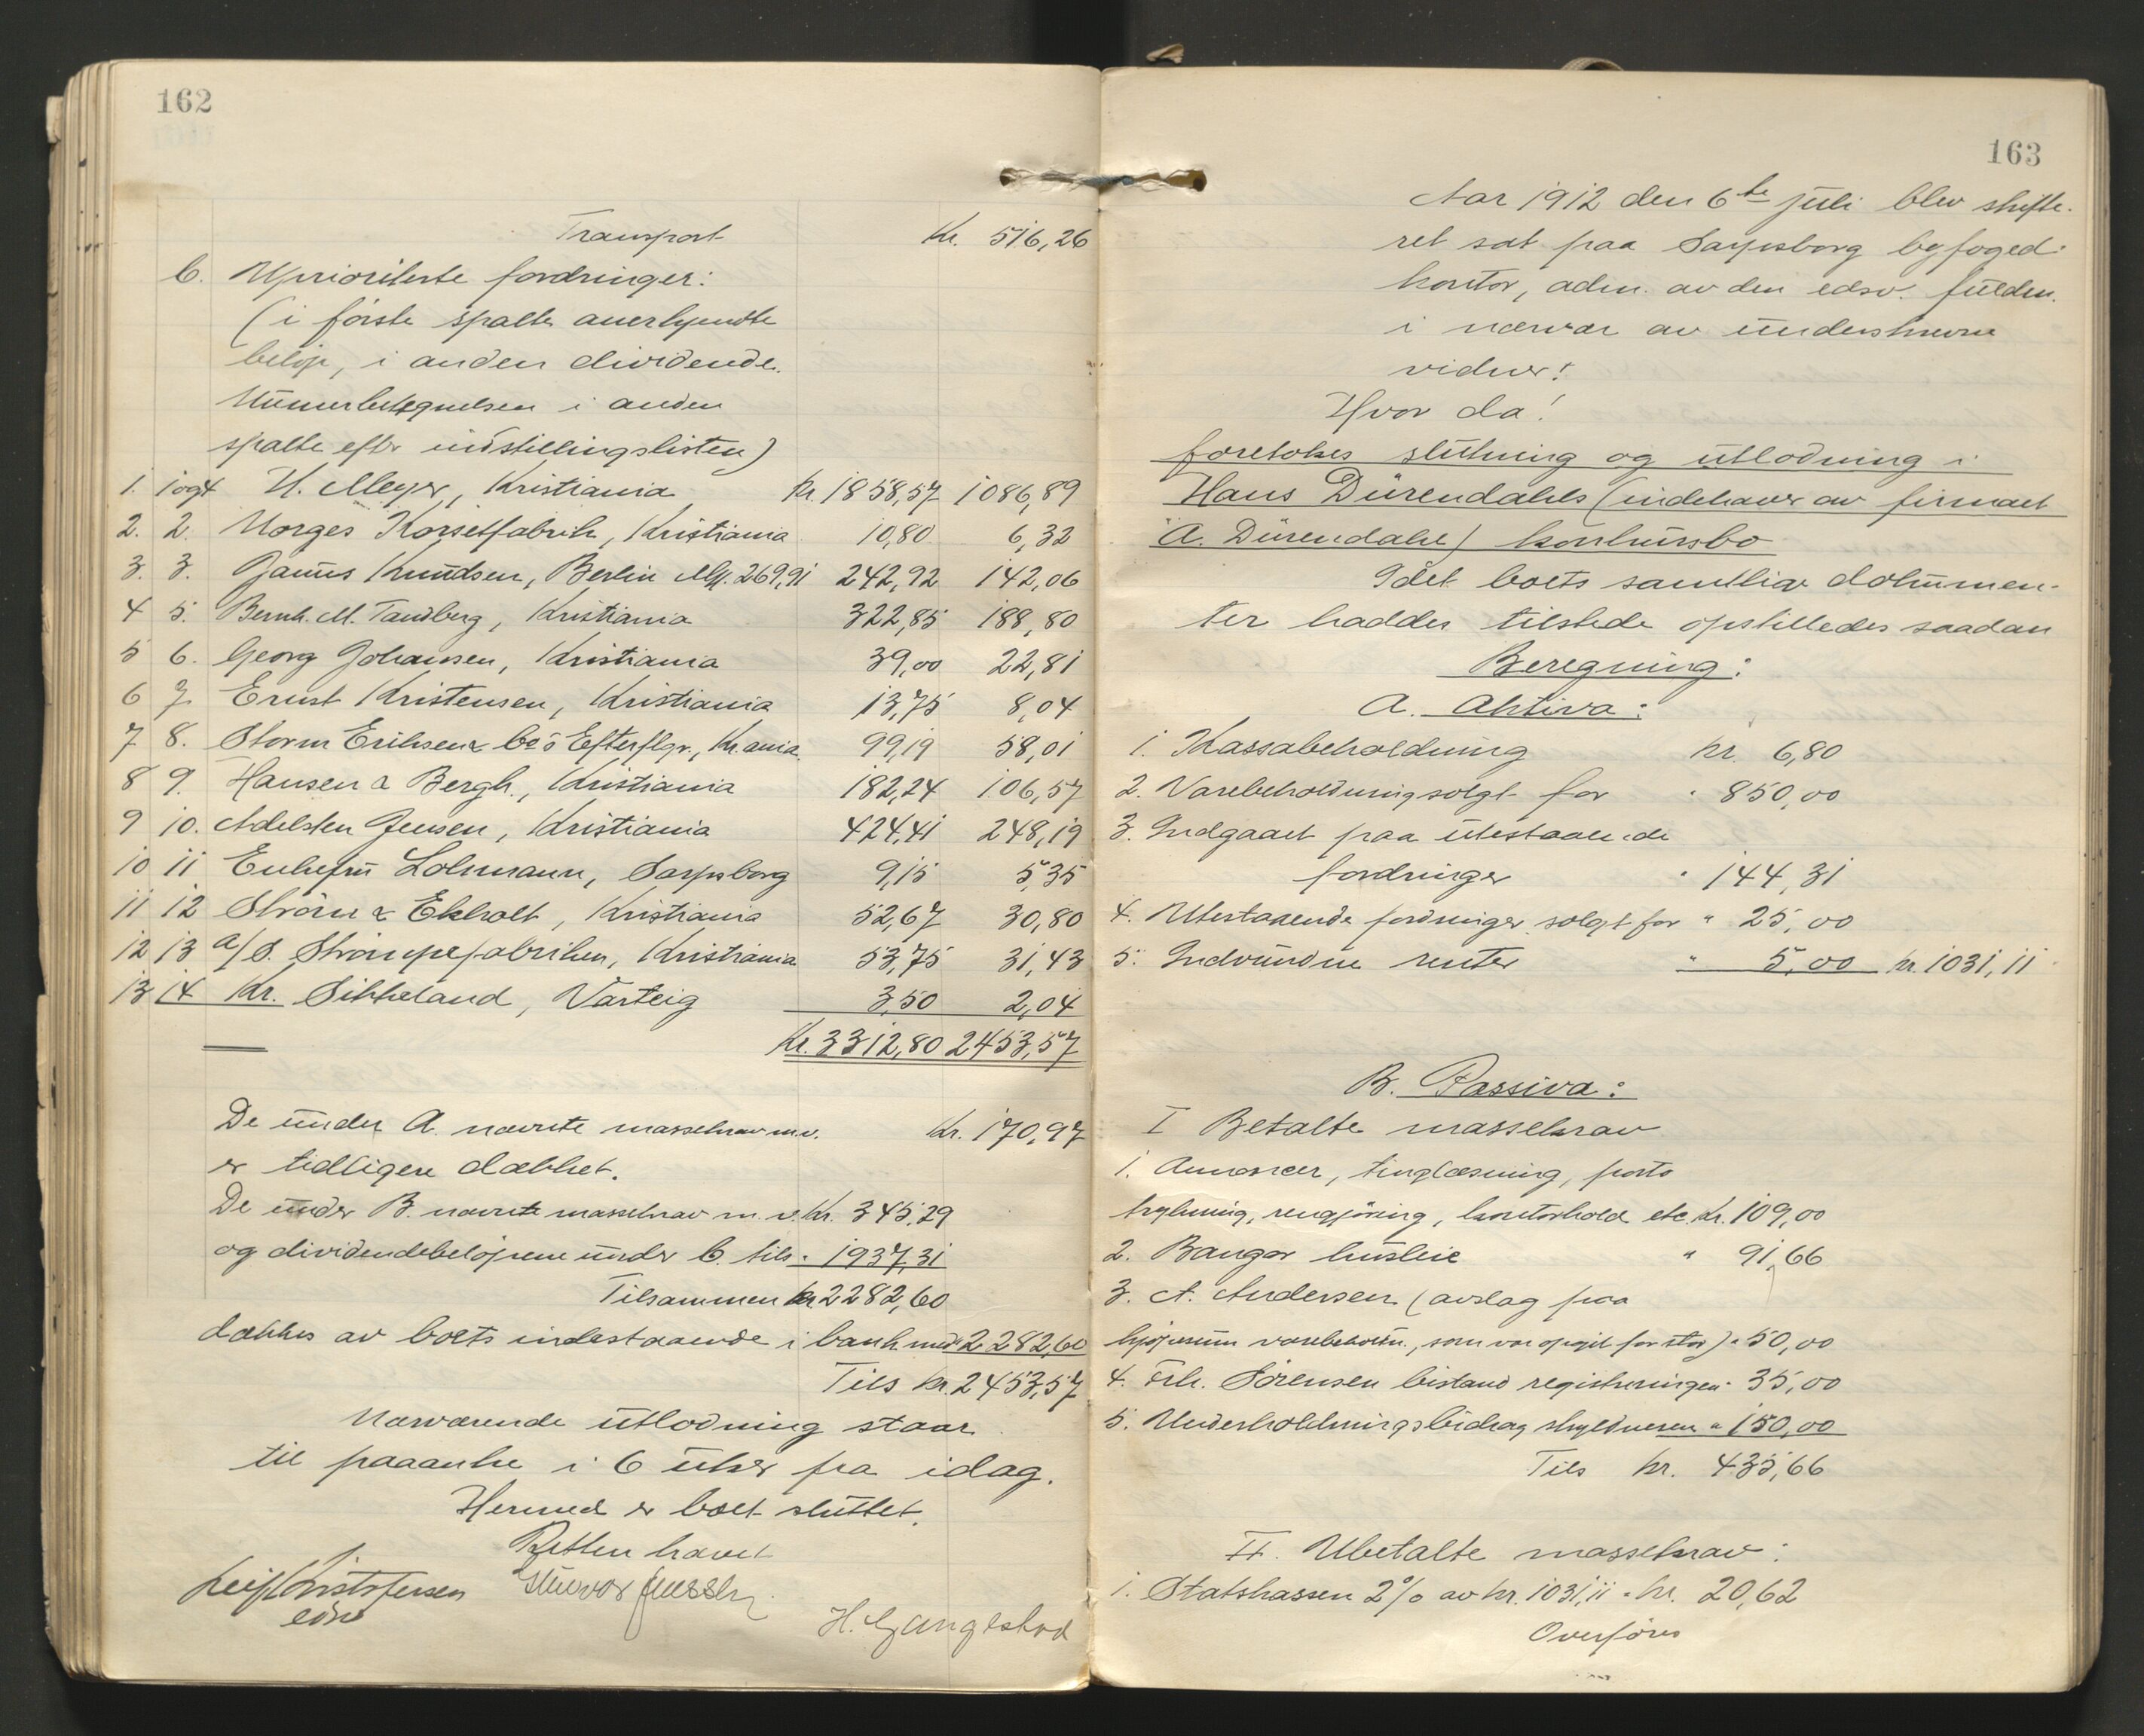 162
Transport Kr. 516,26
C. Uprioriterte fordringer:
(i første spalte anerkjendte
beløp, i anden dividende.
Nummerbetegnelsen i anden
spalte efter indstillingslisten)
1. 1og4 H. Meyer, Kristiania Kr. 1858,57 1086,89
2. 2. Norges Korsetfabrik, Kristiania 10,80 6,32
3. 3. Jamus Knudsen, Berlin Mk. 269,91 242,92 142,06
4 5. Bernh. M. Tandberg, Kristiania 322,85 188,80
5 6. Georg Johansen, Kristiania 39,00 22,81
6 7. Ernst Kristensen, Kristiania 13,75 8,04
7 8. Storm Eriksen & Co's Efterflgr., Kr.ania. 99,19 58,01
8 9. Hansen & Bergh., Kristiania 182,24 106,57
9 10. Adelsten Jensen, Kristiania 424,41 248,19
10 11 Enkefru Lohmann, Sarpsborg 9,15 5,35
11 12 Strøm & Ekholt, Kristiania 52,67 30,80
12 13 A/S. Strømpefabriken, Kristiania 53,75 31,43
13 14 Kr. Sikkeland, Varteig 3,50 2,04
Kr. 3312,80 2453,57
De under A. nævnte massekrav m.v. Kr. 170,97
er tidligere dækket.
De under B. nævnte massekrav m. v. Kr. 345,29
og dividendebeløpene under C. tils. " 1937,31
Tilsammen kr. 2282,60
dækkes av boets indestaaende i bank med 2282,60
Tils kr. 2453,57
Nærværende utlodning staar
til paaanke i 6 uker fra idag.
Hermed er boet sluttet.
Retten hævet
Leif Kristofersen
edsv
H. Gjanglstad
163
Aar 1912 den 6te juli blev skifte-
ret sat paa Sarpsborg byfoged-
kontor, adm. av den edsv. fuldm.
i nærvær av underskrevne
vidner:
Hvor da!
foretokes slutning og utlodning i
Hans Dürendahls (indehaver av firmaet
A. Dürendahl) konkursbo
Idet boets samtlige dokumen-
ter haddes tilstede opstilledes saadan
Beregning:
A. Aktiva:
1. Kassabeholdning kr. 6,80
2. Varebeholdning solgt for " 850,00
3. Indgaaet paa utestaaende
fordringer " 144,31
4. Utestaaende fordringer solgt for " 25,00
5. Indvundne renter " 5,00 kr. 1031,11
B. Passiva:
I Betalte massekrav
1. Annoncer, tinglæsning, porto
trykning, rengjøring, kontorhold etc. Kr. 109,00
2. Bangør husleie " 91,66
3. A. Andersen (avslag paa
kjøpesum varebeholdn., som var opgit for stor) " 50,00
4. Frk. Sørensen bistand registreringen " 35,00
5. Underholdningsbidrag skyldneren " 150,00
Tils kr. 435,66
II. Ubetalte massekrav:
1. Statskassen 2% av kr. 1031,11 " kr. 20,62
Overføres